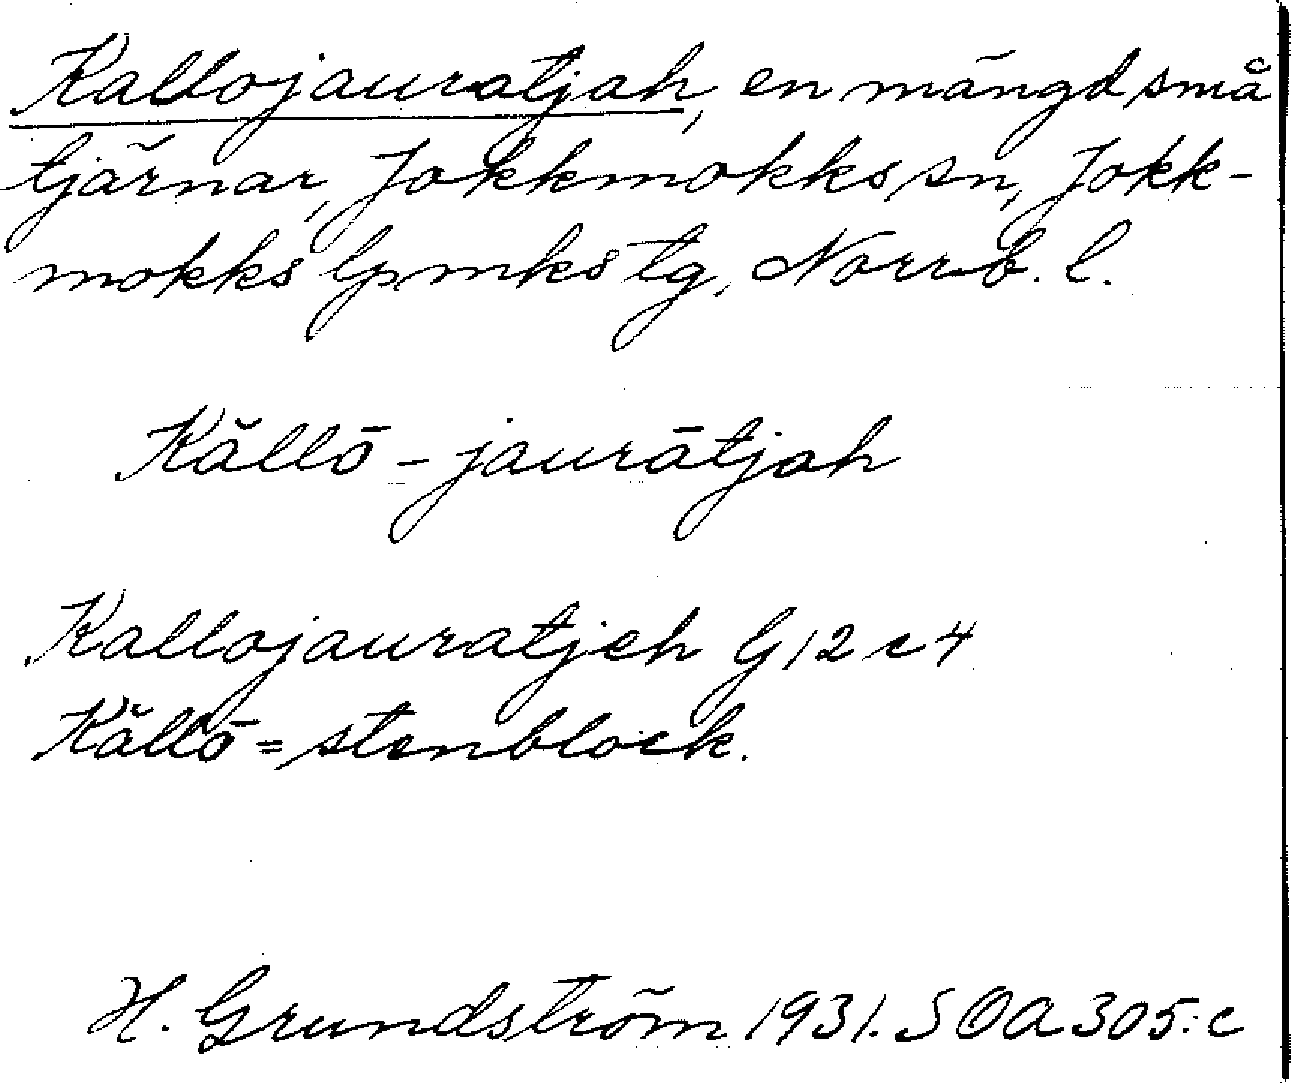 Kallojauratjah, en mängd små
tjärnar, Jokkmokks sn, Jokk-
mokks lpmks tg, Norrb. l.
Kǎllō - jaurātjah
Kallojauratjeh G 12 c 4
Kǎllō = stenblock.
H. Grundström 1931. SOA 305:c